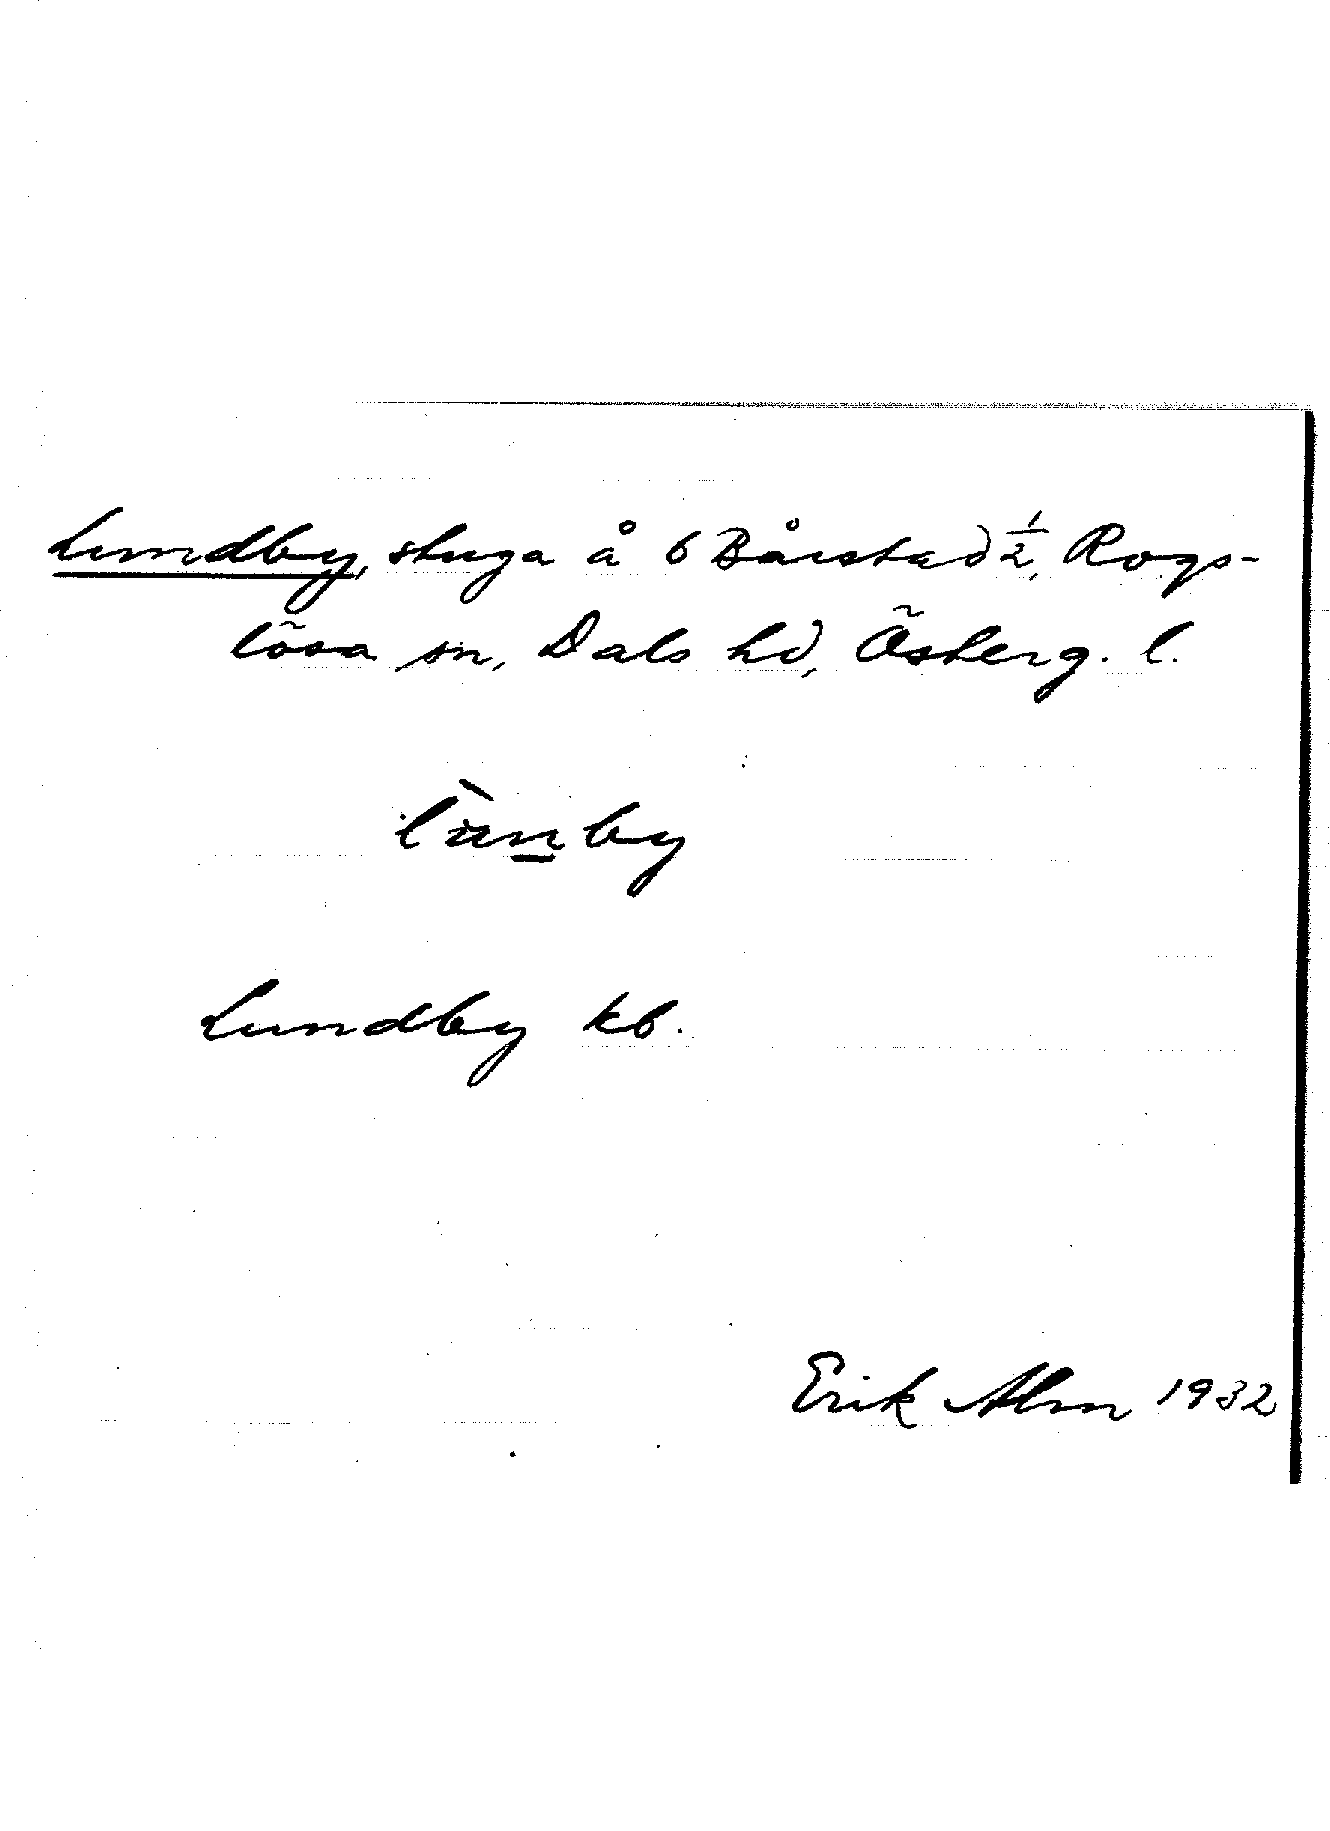 Lundby, stuga å 6 Bårstad ½, Rogs-
lösa sn, Dals hd, Österg. l.
Lundby kb.
Erik Alm 1932